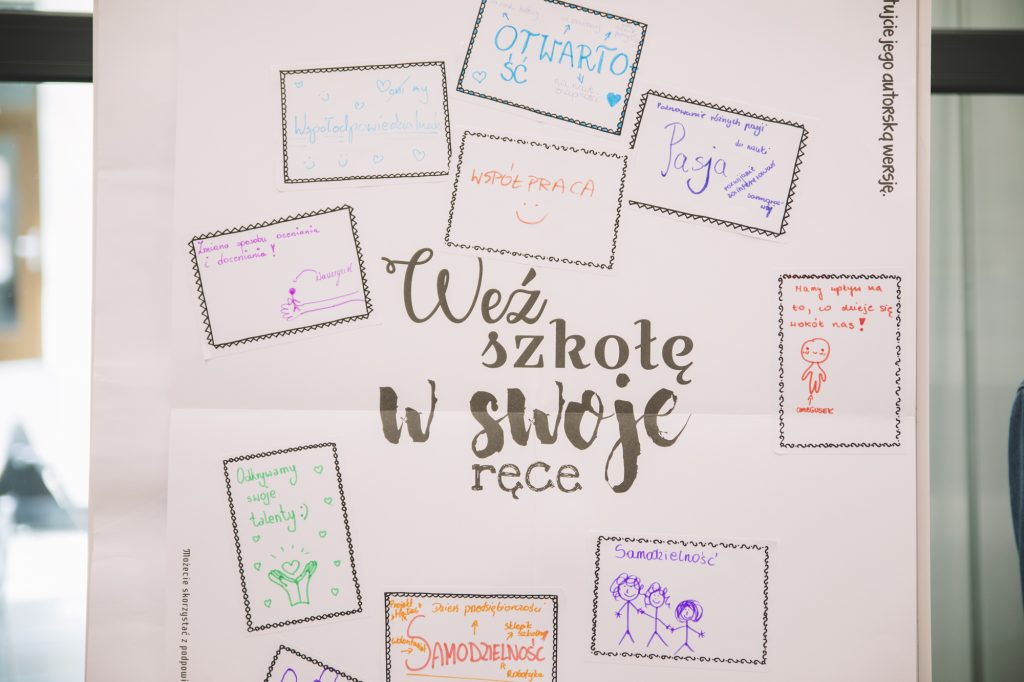 tujcie jego autorską wersję.
OTWARTO
ŚĆ
my
Współodpowiedzialność
Poznawanie różnych pasji
do nauki
Pasja
rozwijanie
zainteresowań
WSPÓŁPRACA
Zmiana sposobu oceniania
i doceniania!
Weź
szkołę
w swoje
ręce
Mamy wpływ na
to, co dzieje się
wokół nas!
OMEGUSEK
Odkrywamy
swoje
talenty:)
Samodzielność
Projekt
Dzień przedsiębiorczości
sklepik
szkolny
Wolontariat
SAMODZIELNOŚĆ
Robotyka
Możecie skorzystać z podpowi